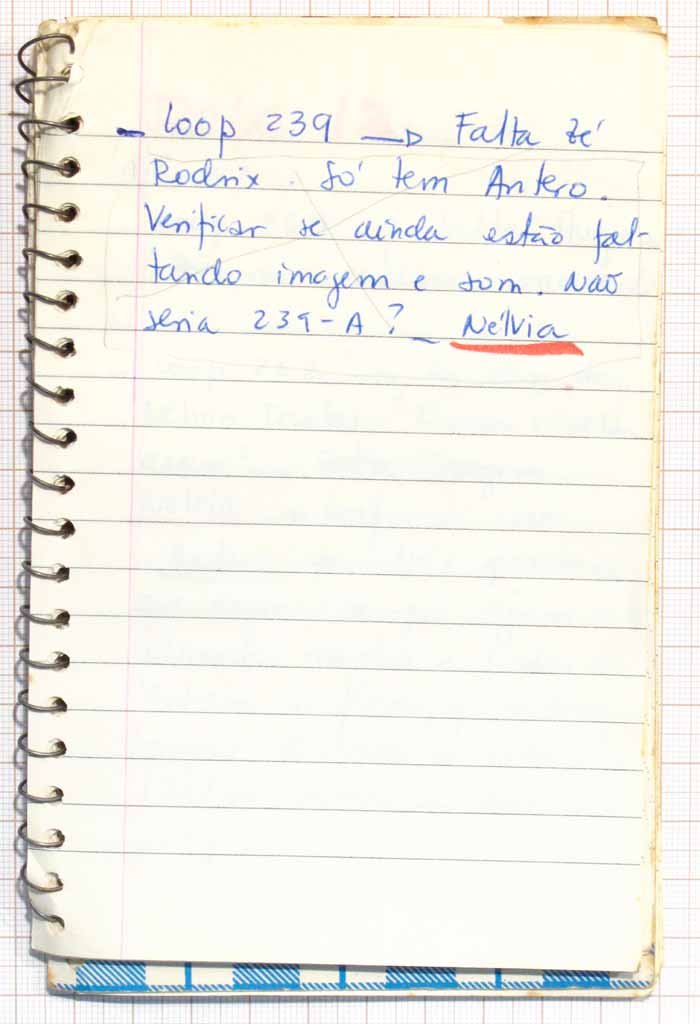 - Loop 239 → Falta Zé
Rodrix. Só tem Antero.
Verificar se ainda estão fal-
tando imagem e som. Não
seria 239-A? _ Nélvia